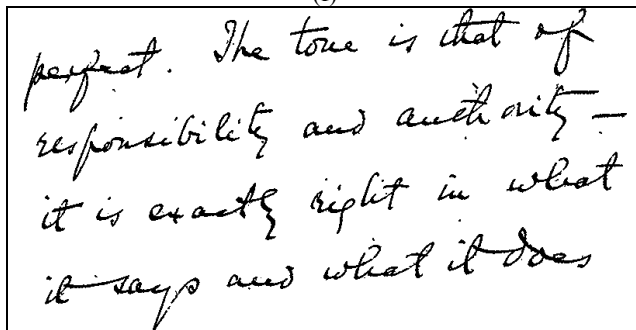 perfect. The tone is that of
responsibility and authority —
it is exactly right in what
it says and what it does